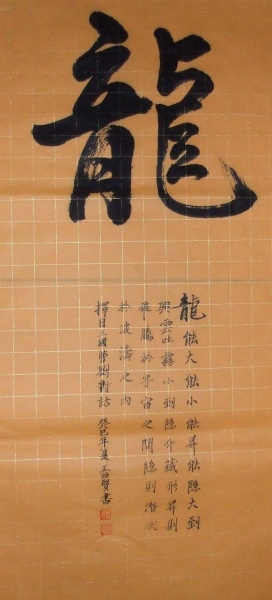 龍
龍能大能小能昇能隐大則
興雲吐霧小則隐介藏形昇則
飛騰於宇宙之間隐則潜伏
於波濤之内
擇自三國曹劉對話 癸巳年夏 王治賢書